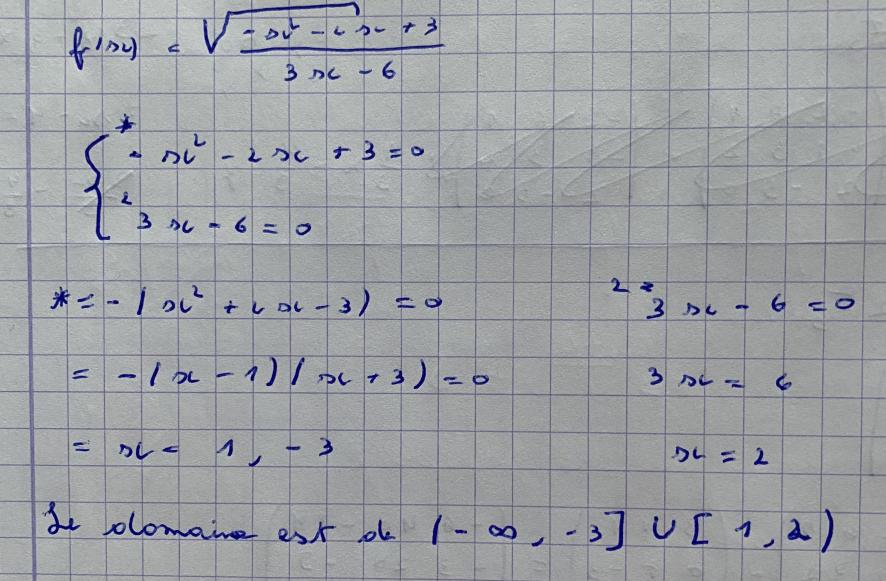 f(x) = √((-x² - 2x + 3)/(3x - 6))
* - x² - 2x + 3 = 0
2 3x - 6 = 0
* = -(x² + 2x - 3) = 0
2* 3x - 6 = 0
= -(x - 1)(x + 3) = 0
3x = 6
= x = 1, -3
x = 2
Le domaine est de (-∞, -3] ∪ [1, 2)